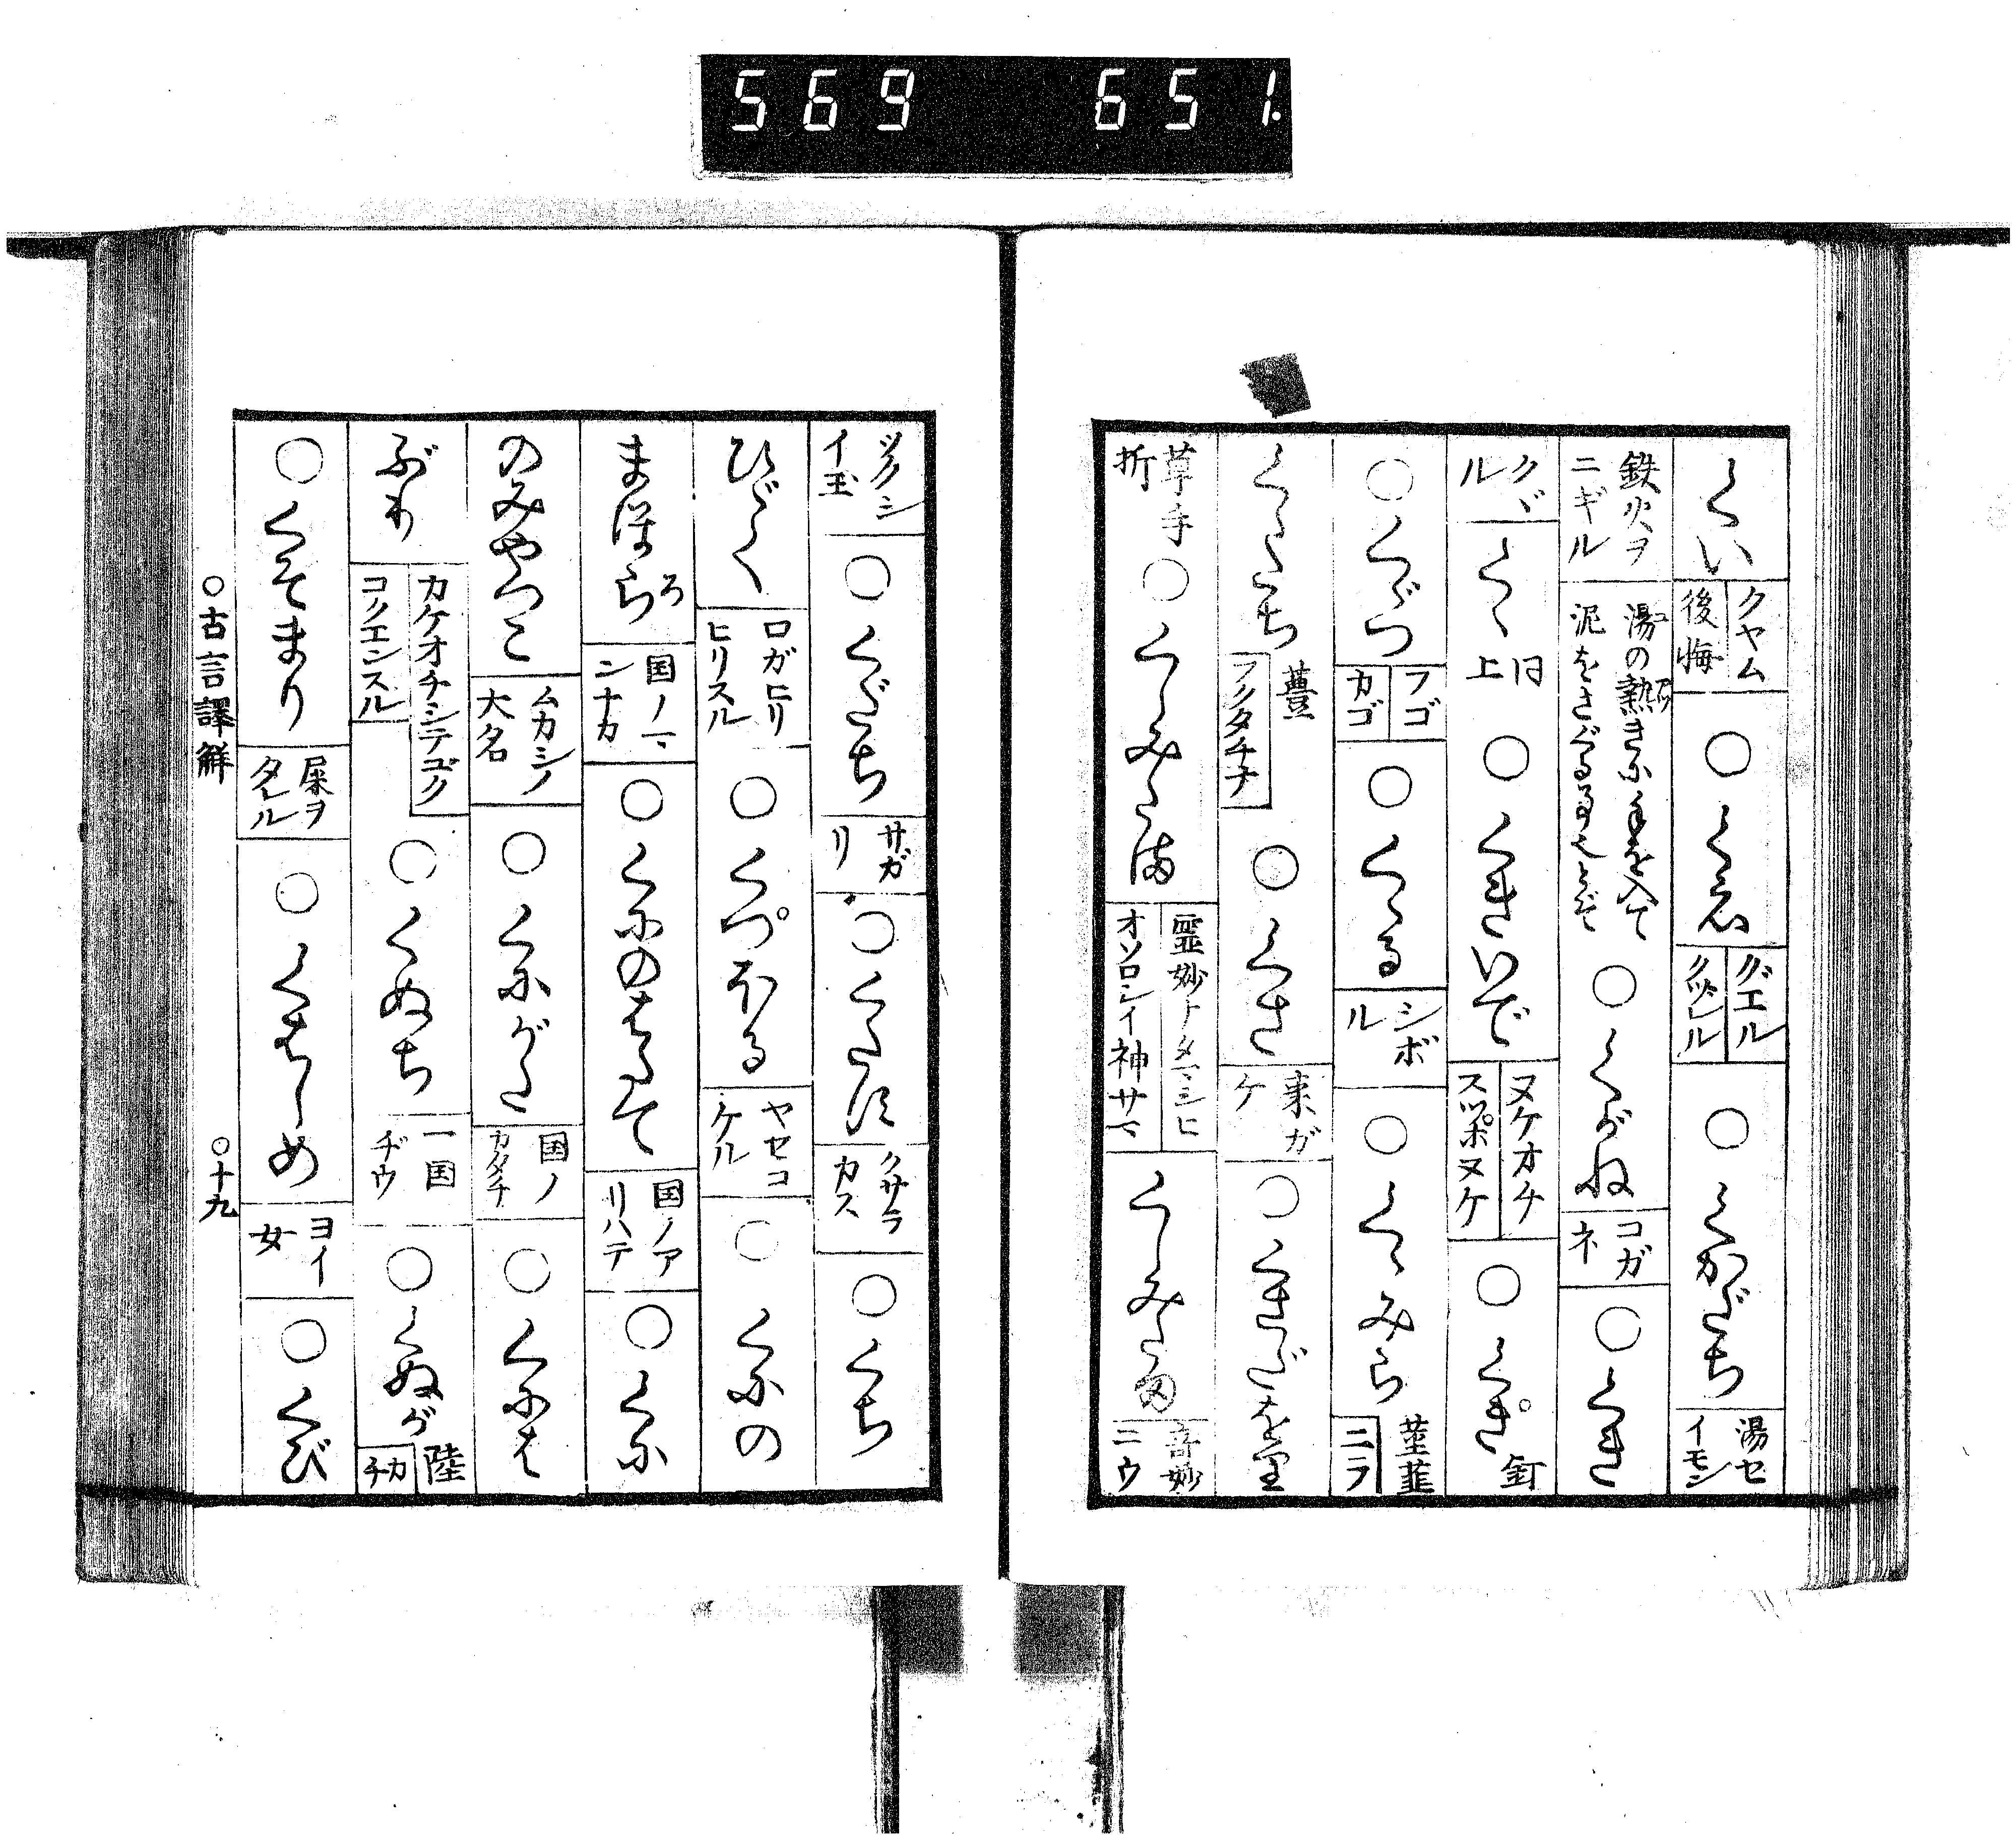 569 651.
くい クヤム 後悔 ○くゑ グエル クヅルル ○くかだち 湯セイモン
鉄火ヲニギル 湯の熱きに手を入て泥をさぐる事もとぞ ○くがね コガネ ○くき
クヾル くゝ 同上 ○くきいで ヌケオチ スツポヌケ ○くぎ 釘
○くゞつ フゴ カゴ ○くゝる シボル ○くゝみら 茎韮 ニラ
くゝたち 薹 フクタチナ ○くさ 来ガケ ○くさぐさを
草手折 ○くしみたま 霊妙ナタマシヒ オソロシイ神サマ くしみたま 奇妙ニウ
ツクシイ玉 ○くだち サガリ ○くたす クサラカス ○くち
ひゞく 口ガヒリヒリスル ○くづほる ヤセコケル ○くにの
まほらろ 国ノマンナカ ○くにのはたて 国ノアリハテ ○くに
のみやつこ ムカシノ大名 ○くにがた 国ノカタチ ○くには
ぶり カケオチシテユク コノエンスル ○くぬち 一国ヂウ ○くぬが 陸 カチ
○くそまり 屎ヲタレル ○くはしめ ヨイ女 ○くび
○古言譯解 ○十九